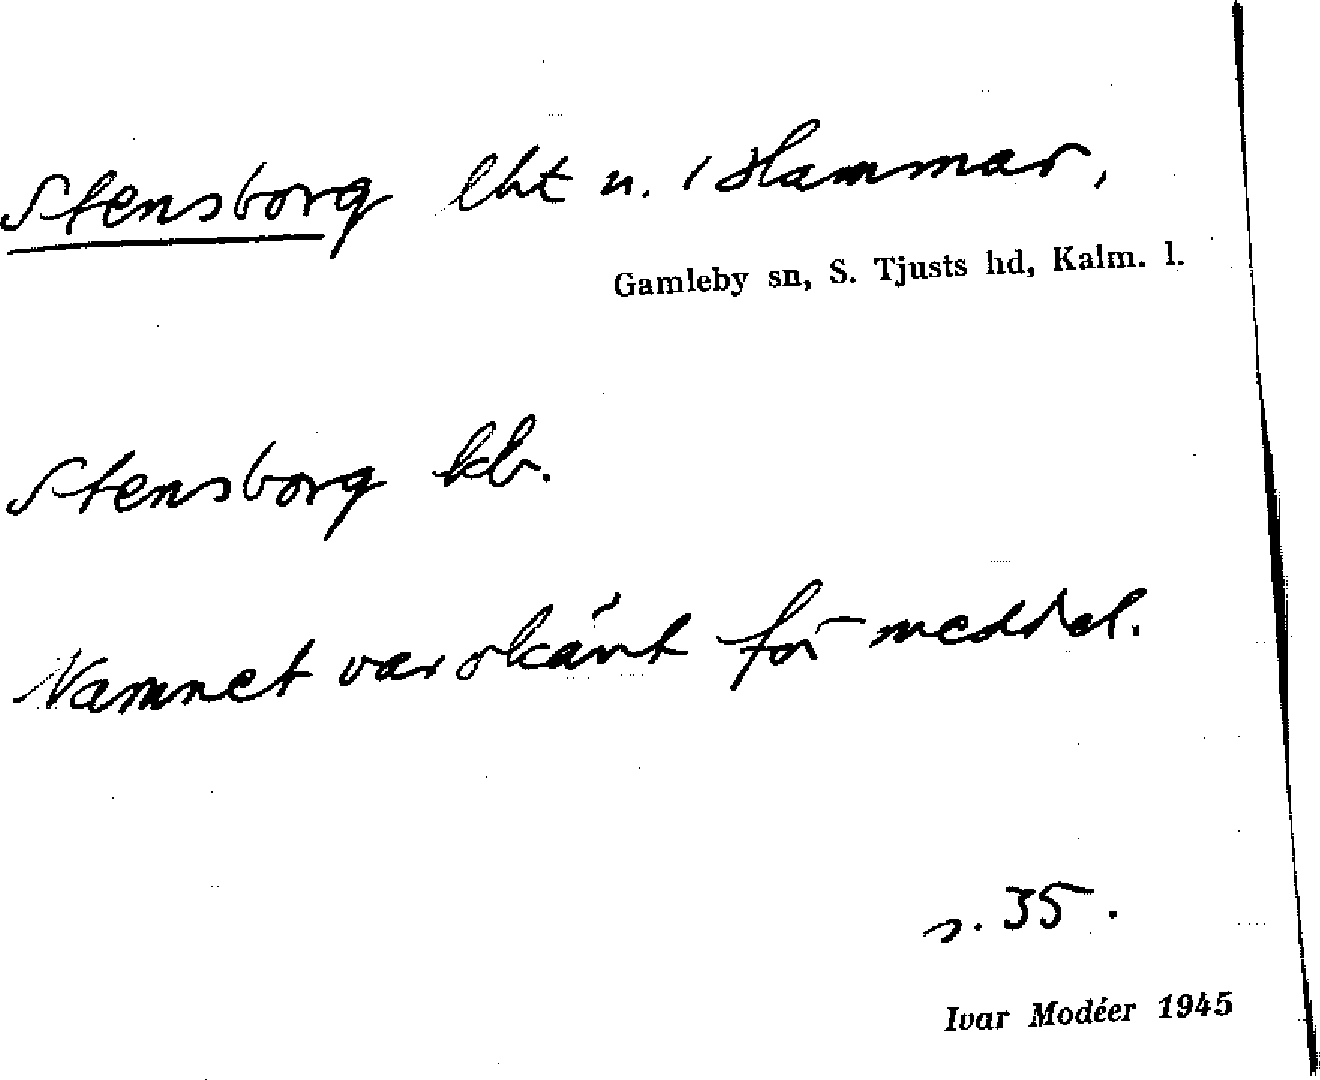 Stensborg lht u. 1 Hammar,
Gamleby sn, S. Tjusts hd, Kalm. l.
Stensborg kb.
Namnet var okänt för meddel.
s. 35.
Ivar Modéer 1945